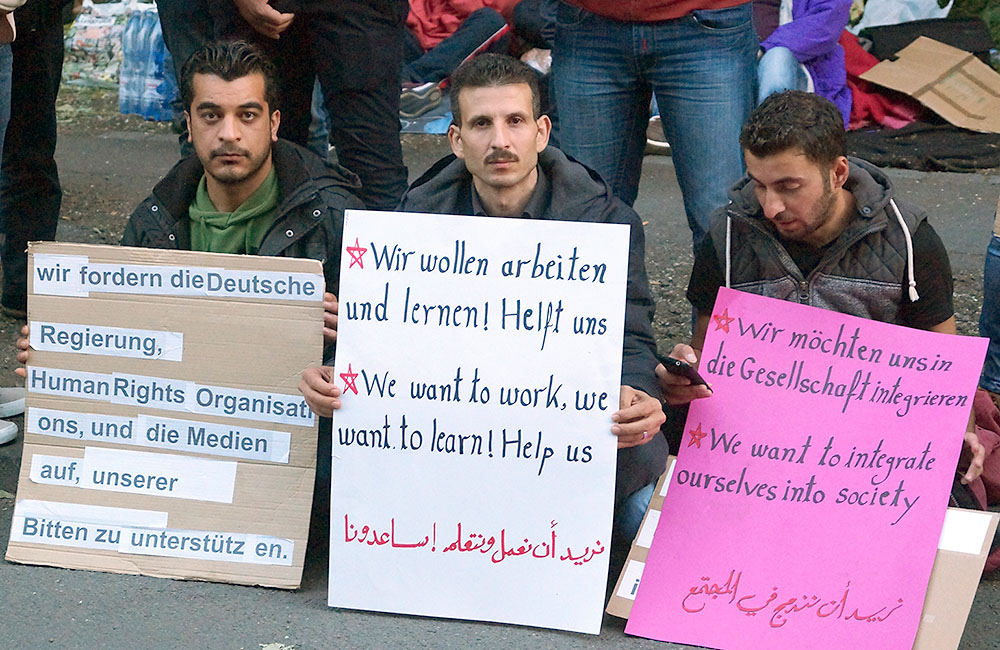 wir fordern die Deutsche
Regierung,
Human Rights Organisati
ons, und die Medien
auf, unserer
Bitten zu unterstütz en.
Wir wollen arbeiten
und lernen! Helft uns
We want to work, we
want to learn! Help us
نريد أن نعمل ونتعلم ! ساعدونا
Wir möchten uns in
die Gesellschaft integrieren
We want to integrate
ourselves into society
نريد أن نندمج في المجتمع